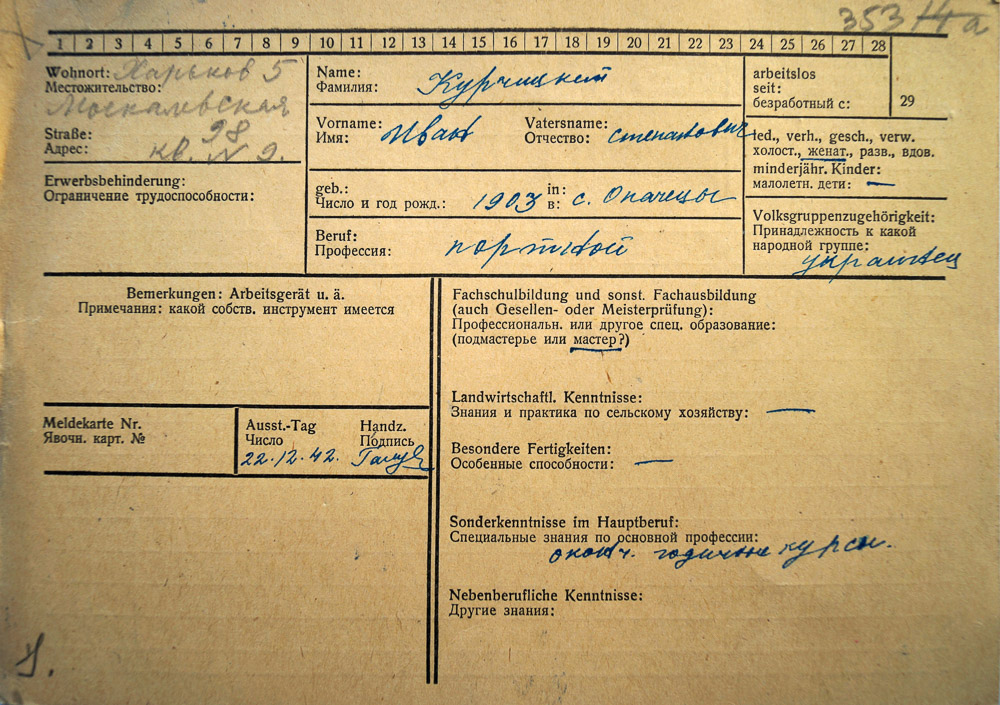 353 14a
1 2 3 4 5 6 7 8 9 10 11 12 13 14 15 16 17 18 19 20 21 22 23 24 25 26 27 28
29
Wohnort: Харьков 5
Местожительство:
Москалевская
Straße: 98
Адрес: кв. N 9.
Erwerbsbehinderung:
Ограничение трудоспособности:
Name:
Фамилия: Курчицкий
Vorname:
Имя: Иван
Vatersname:
Отчество: степанович
geb.: in:
Число и год рожд.: 1903 в: с. Опачецы
Beruf:
Профессия: портной
arbeitslos
seit:
безработный с:
led., verh., gesch., verw.
холост., женат., разв., вдов.
minderjähr. Kinder:
малолетн. дети: —
Volksgruppenzugehörigkeit:
Принадлежность к какой
народной группе:
украинец
Bemerkungen: Arbeitsgerät u. ä.
Примечания: какой собств. инструмент имеется
Meldekarte Nr.
Явочн. карт. №
Ausst.-Tag
Число
22.12.42.
Handz.
Подпись
Fachschulbildung und sonst. Fachausbildung
(auch Gesellen- oder Meisterprüfung):
Профессиональн. или другое спец. образование:
(подмастерье или мастер?)
Landwirtschaftl. Kenntnisse:
Знания и практика по сельскому хозяйству: —
Besondere Fertigkeiten:
Особенные способности: —
Sonderkenntnisse im Hauptberuf:
Специальные знания по основной профессии:
оконч. годичные курсы.
Nebenberufliche Kenntnisse:
Другие знания: